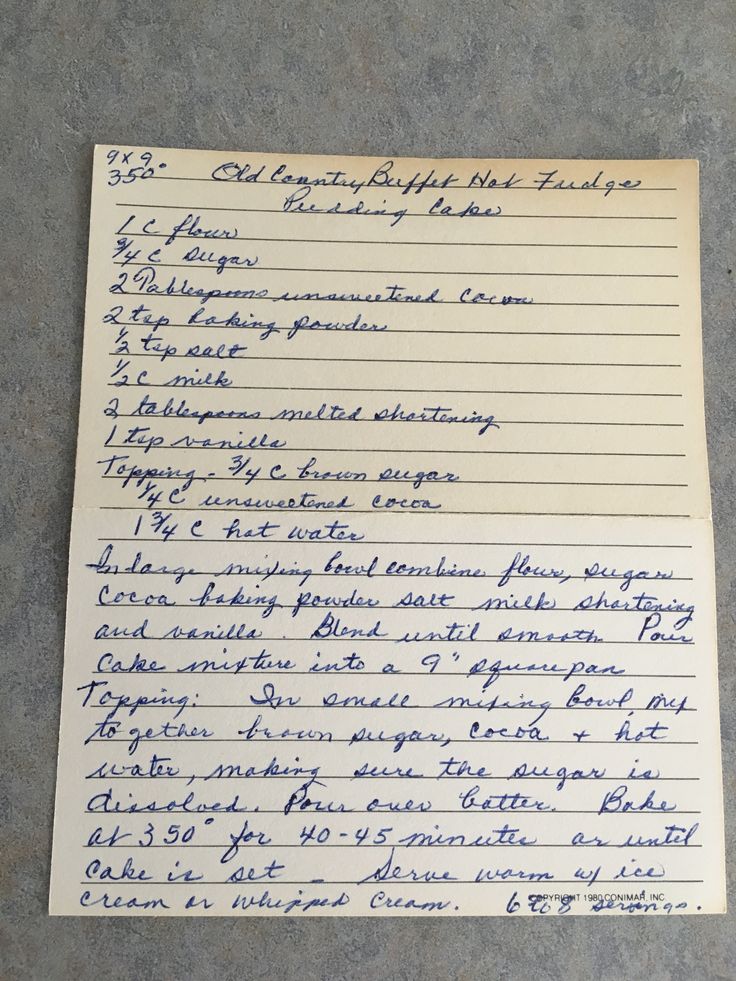 9 x 9
350° Old Country Buffet Hot Fudge
Pudding Cake
1 C flour
3/4 C sugar
2 Tablespoons unsweetened cocoa
2 tsp baking powder
1/2 tsp salt
1/2 C milk
2 tablespoons melted shortening
1 tsp vanilla
Topping - 3/4 C brown sugar
1/4 C unsweetened cocoa
1 3/4 C hot water
In large mixing bowl combine flour, sugar
cocoa baking powder salt milk shortening
and vanilla. Blend until smooth Pour
cake mixture into a 9" square pan
Topping: In small mixing bowl, mix
together brown sugar, cocoa + hot
water, making sure the sugar is
dissolved. Pour over batter. Bake
at 350° for 40-45 minutes or until
cake is set - Serve warm w/ ice
cream or whipped cream. 6 to 8 servings.
COPYRIGHT 1980 CONIMAR, INC.